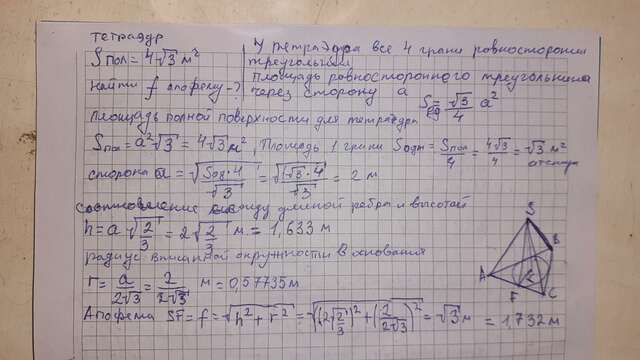 тетраэдр
Sпол = 4√3 м²
Найти f апофему - ?
У тетраэдра все 4 грани равносторонни
треугольники
Площадь равностороннего треугольника
через сторону a
S = √3/4 a²
Площадь полной поверхности для тетраэдра
Sпол = a²√3 = 4√3 м², Площадь 1 грани Sодн = Sпол/4 = 4√3/4 = √3 м²
отсюда
сторона a = √(Sод·4/√3) = √(√3·4/√3) = 2 м
Соотношение между длиной ребра и высотой
h = a√(2/3) = 2√(2/3) м = 1,633 м
радиус вписанной окружности в основания
r = a/2√3 = 2/2√3 м = 0,57735 м
Апофема SF = f = √(h² + r²) = √((2√(2/3))² + (2/2√3)²) = √3 м = 1,732 м
S
B
A
F
C